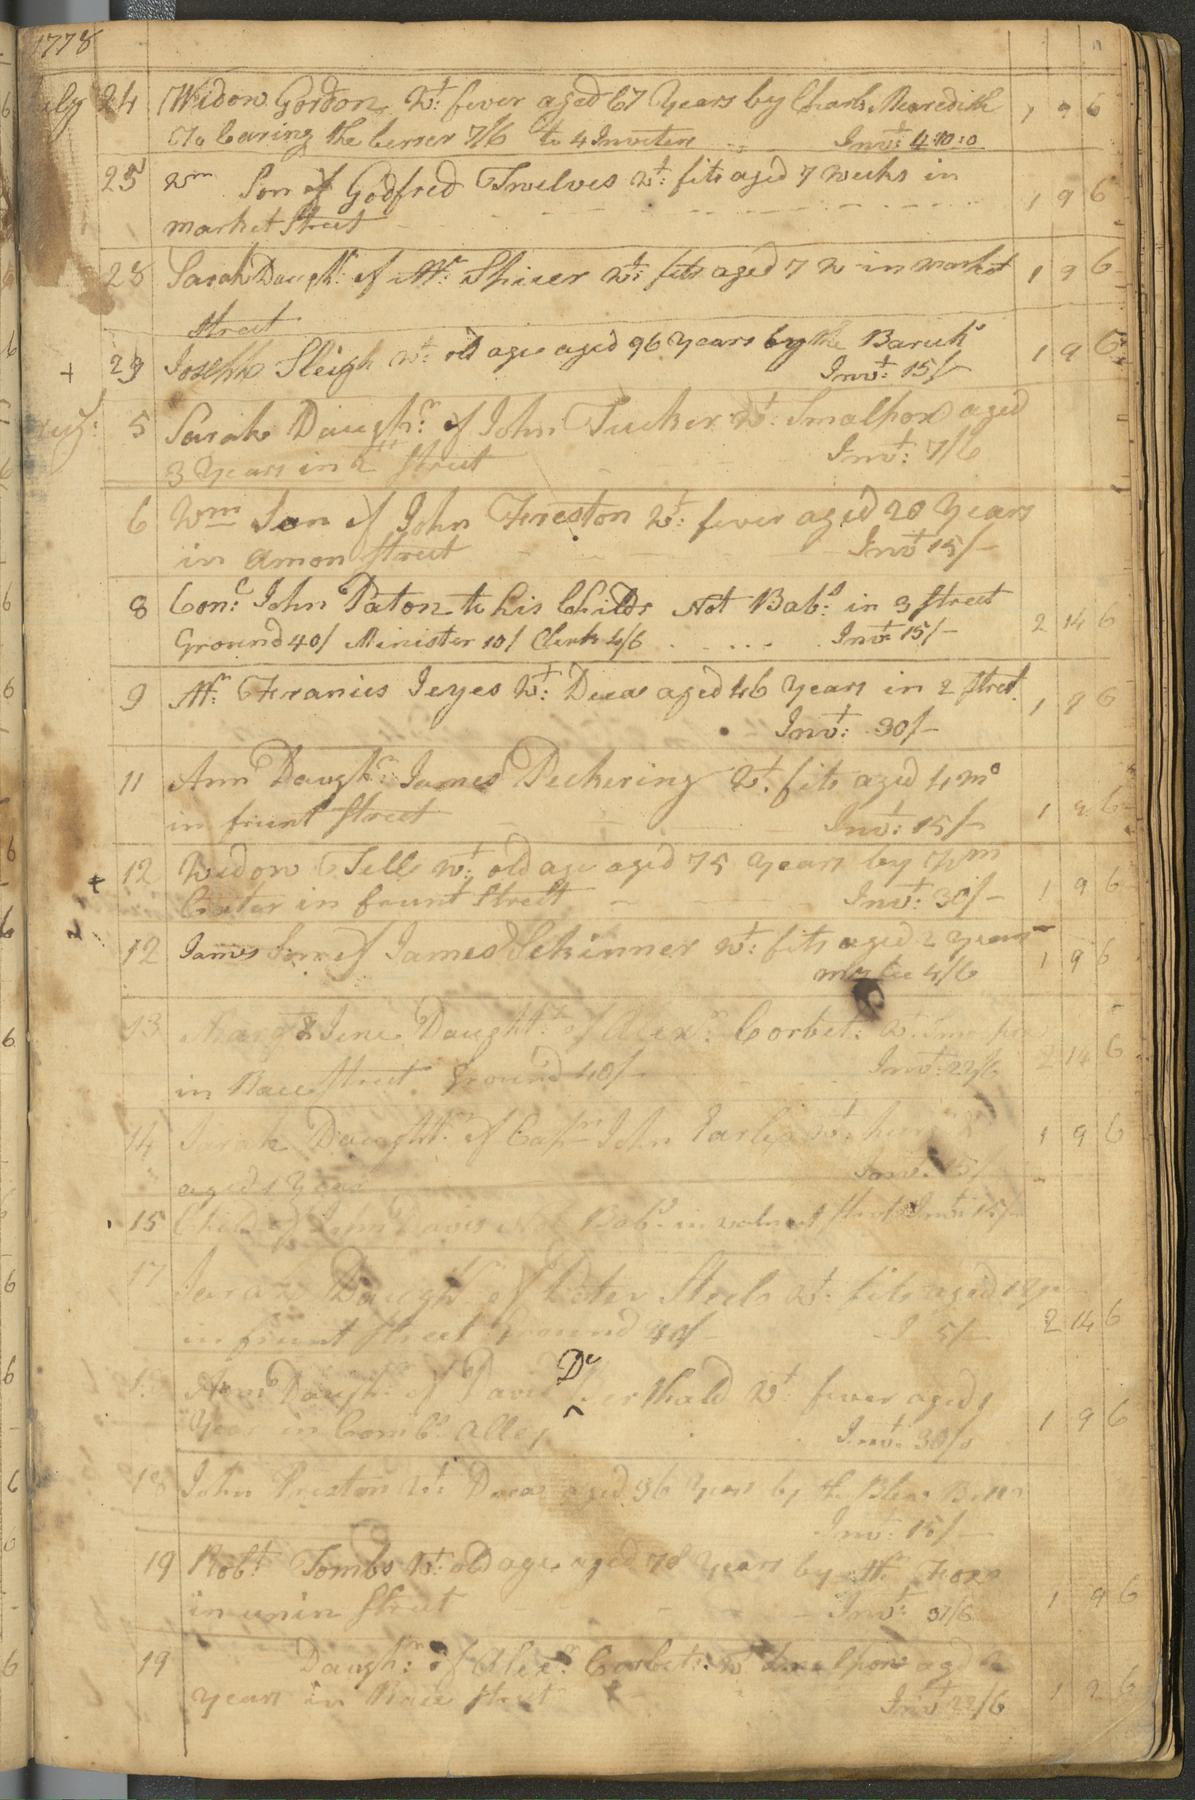 1778
July 24 Widow Gordon Wt: fever aged 67 Years by Charls Meredith 1 9 6
To Caring the Cerser 7/6 to 4 Inviters Invt: 4:10:0
25 Wm Son of Godfred Twelves Wt: fits aged 7 weeks in 1 9 6
market Street
28 Sarah Daughr: of Mr Spicer Wt: fits aged 7 W in market 1 9 6
Street
+ 29 Joseph Sleigh Wt: old age aged 96 Years by the Baricks 1 9 6
Invt: 15/-
Aug: 5 Sarah Daughr: of John Tucker Wt: Smalpox aged
3 Years in 2d Street Invt: 7/6
6 Wm Son of John Freston Wt: fever aged 20 Years
in Amon Street Invt 15/-
8 Conc: John Paton to his Childr Not Babs: in 3 Street 2 14 6
Ground 40/ Minister 10/ Clerk 4/6 Invt: 15/-
9 Mr: Francis Jeyes Wt: Decas aged 46 Years in 2 Street 1 9 6
Invt: 30/-
11 Ann Daughr: James Peckering Wt: fits aged 4 mo
in frunt Street Invt: 15/- 1 9 6
+ 12 Widow Tell Wt: old age aged 75 Years by Wm 1 9 6
Carter in frunt Street Invt: 30/-
12 James Son of James Schinner Wt: fits aged 2 Years 1 9 6
my fee 4/6
13 Daughtr: of Alexr: Corbet: Wt: 2 14 6
in Race Street Ground 40/- Invt: 22/6
14 Sarah Daughtr: of Capn John Earle Wt: 1 9 6
aged 1 Year Invt: 15/
15 Child of John Davis Not Babs: in walnut Street Invt: 15/-
17 Sarah Daughr of Peter Steel Wt: fits aged
in frunt Street Ground 40/- 5/- 2 14 6
De
Ann Daughr of David ^ erthald Wt: fever aged 1
Year in Combs Alley Invt: 30/ 1 9 6
18 John Preston Wt: Decas aged 36 Years by the Blew Bell
Invt: 15/-
19 Robt Tombs Wt: old age aged 78 Years by Mr Fox
in unin Street Invt: 37/6 1 9 6
19 Daughr: of Alexr: Corbet: Wt Smalpox aged 2
years in Race Street Invt 22/6 1 9 6